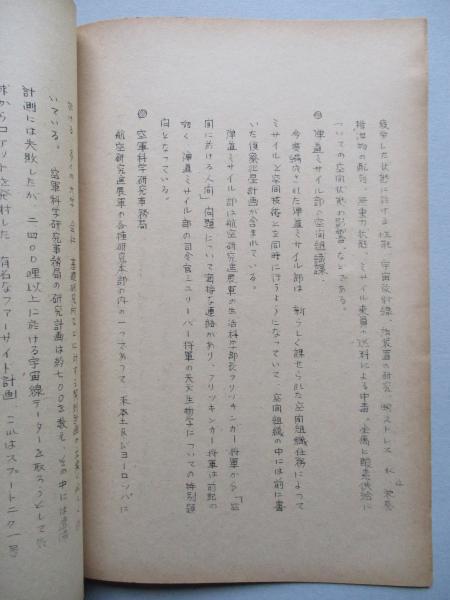 疲労した状態に於ける性能、宇宙放射線、 装置の研究、 ストレス
排泄物の配列、無重力状態、ミサイル乗員の送料による中毒、全局に酸素供給に
ついての空間状態の影響、などである。
弾道ミサイル部の空間組織課
今度編成された弾道ミサイル部は、新らしく課せられた空間組織任務によって
ミサイルと空間技術とを同時に行うようになっていて、空間組織の中には前に書
いた偵察衛星計画が含まれている。
弾道ミサイル部は航空研究進展軍の生活科学部長フリッキンガー将軍から「空
間に於ける人間」問題について直接な連絡があり、フリッキンガー将軍は前記の
如く、弾道ミサイル部の司令官シュリーバー将軍の天文生物学についての特別顧
問となっている。
空軍科学研究事務局
航空研究進展軍の各種研究本部の内の一つであって、米本土及びヨーロッパに
於ける 多くの大学、会社、
いている。 空軍科学研究事務局の研究計画は約七〇〇を数え、その中には
計画には失敗したが、二四〇〇哩以上に於ける宇宙線データーを取ろうとして
球からロケットを発射した 有名なファーサイド計画 これはスプートニク一号